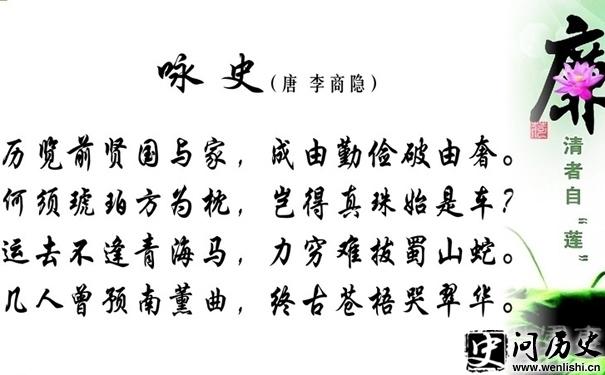 咏史(唐 李商隐)
历览前贤国与家，成由勤俭破由奢。
何须琥珀方为枕，岂得真珠始是车?
运去不逢青海马，力穷难拔蜀山蛇。
几人曾预南薰曲，终古苍梧哭翠华。
廉
清者自“莲”
史 问历史
www.wenlishi.cn